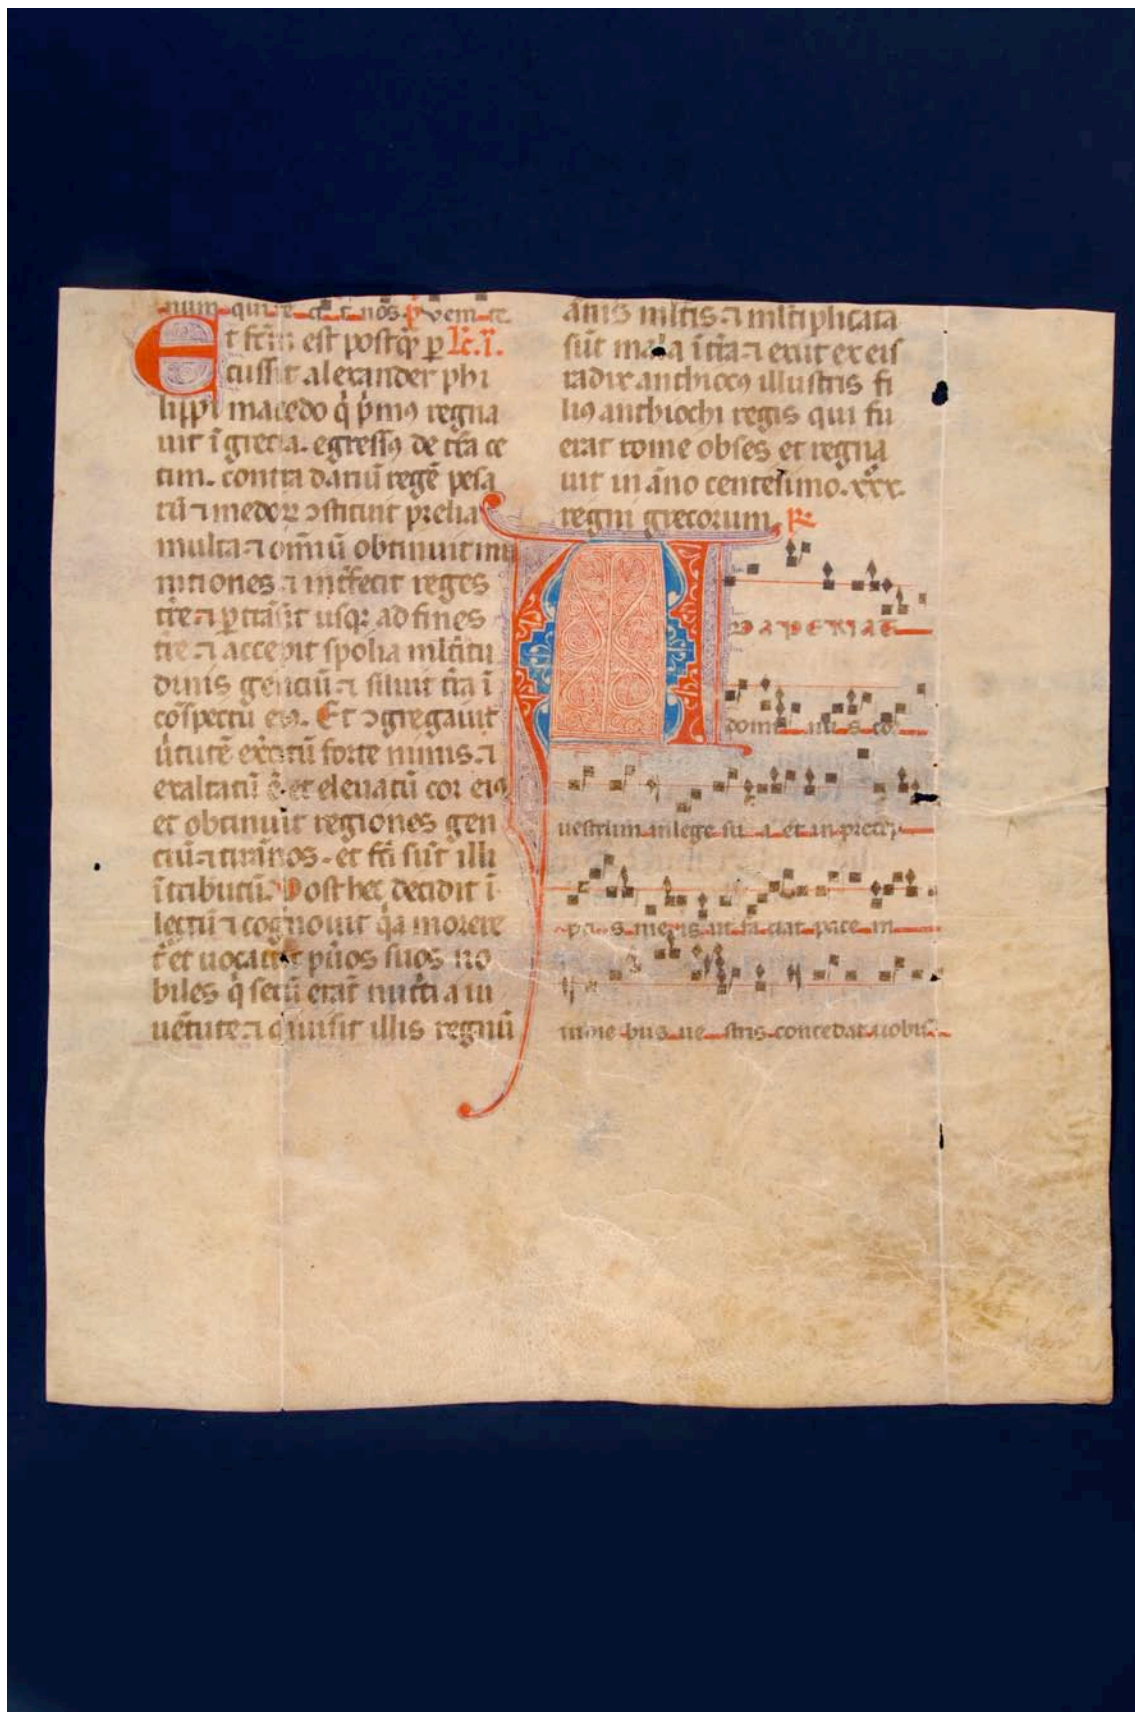 num qui re
Et fcm̄ est postq̄ꝫ ꝑ Lc̄. i.
cussit alexander phi
lippi macedo q̄ pͥmꝰ regna
uit ī grecia. egressꝰ de tͬra ce
tim. contra dariū regē ꝑsa
rū ⁊ medoꝝ ↄstituit prelia
multa ⁊ om̄iū obtinuit mu
nitiones ⁊ int̄fecit reges
tͬre ⁊ ꝑtͬnsiit usqꝫ ad fines
tͬre ⁊ accepit spolia mltitu
dinis gentiū ⁊ siluit tͬra ī
cōspectu eiꝰ. Et ↄgregauit
ũtutē exc̄itū forte nimis ⁊
exaltatū ē et eleuatū cor eiꝰ
et obtinuit regiones gen
tiū ⁊ tirānos. et fc̄i sūt illi
ī tributū. Post hec decidit ī
lectū ⁊ cognouit qͥa morere
t᷑ et uocauit pūos suos no
biles q̄ secū erāt nutͥti a iu
uētute ⁊ diuisit illis regnū
ānis mltis ⁊ mltiplicata
sūt mala ī tͬra ⁊ exiit ex eis
radix anthiocꝰ illustris fi
liꝰ anthiochi regis qui fu
erat rome obses et regna
uit in āno centesimo. xxx.
regni grecorum. ꝶ
ADAPERIAT
dominus cor
uestrum in lege sua et in precep
ptis meis ut faciat pacem in
diebus uestris concedat uobis